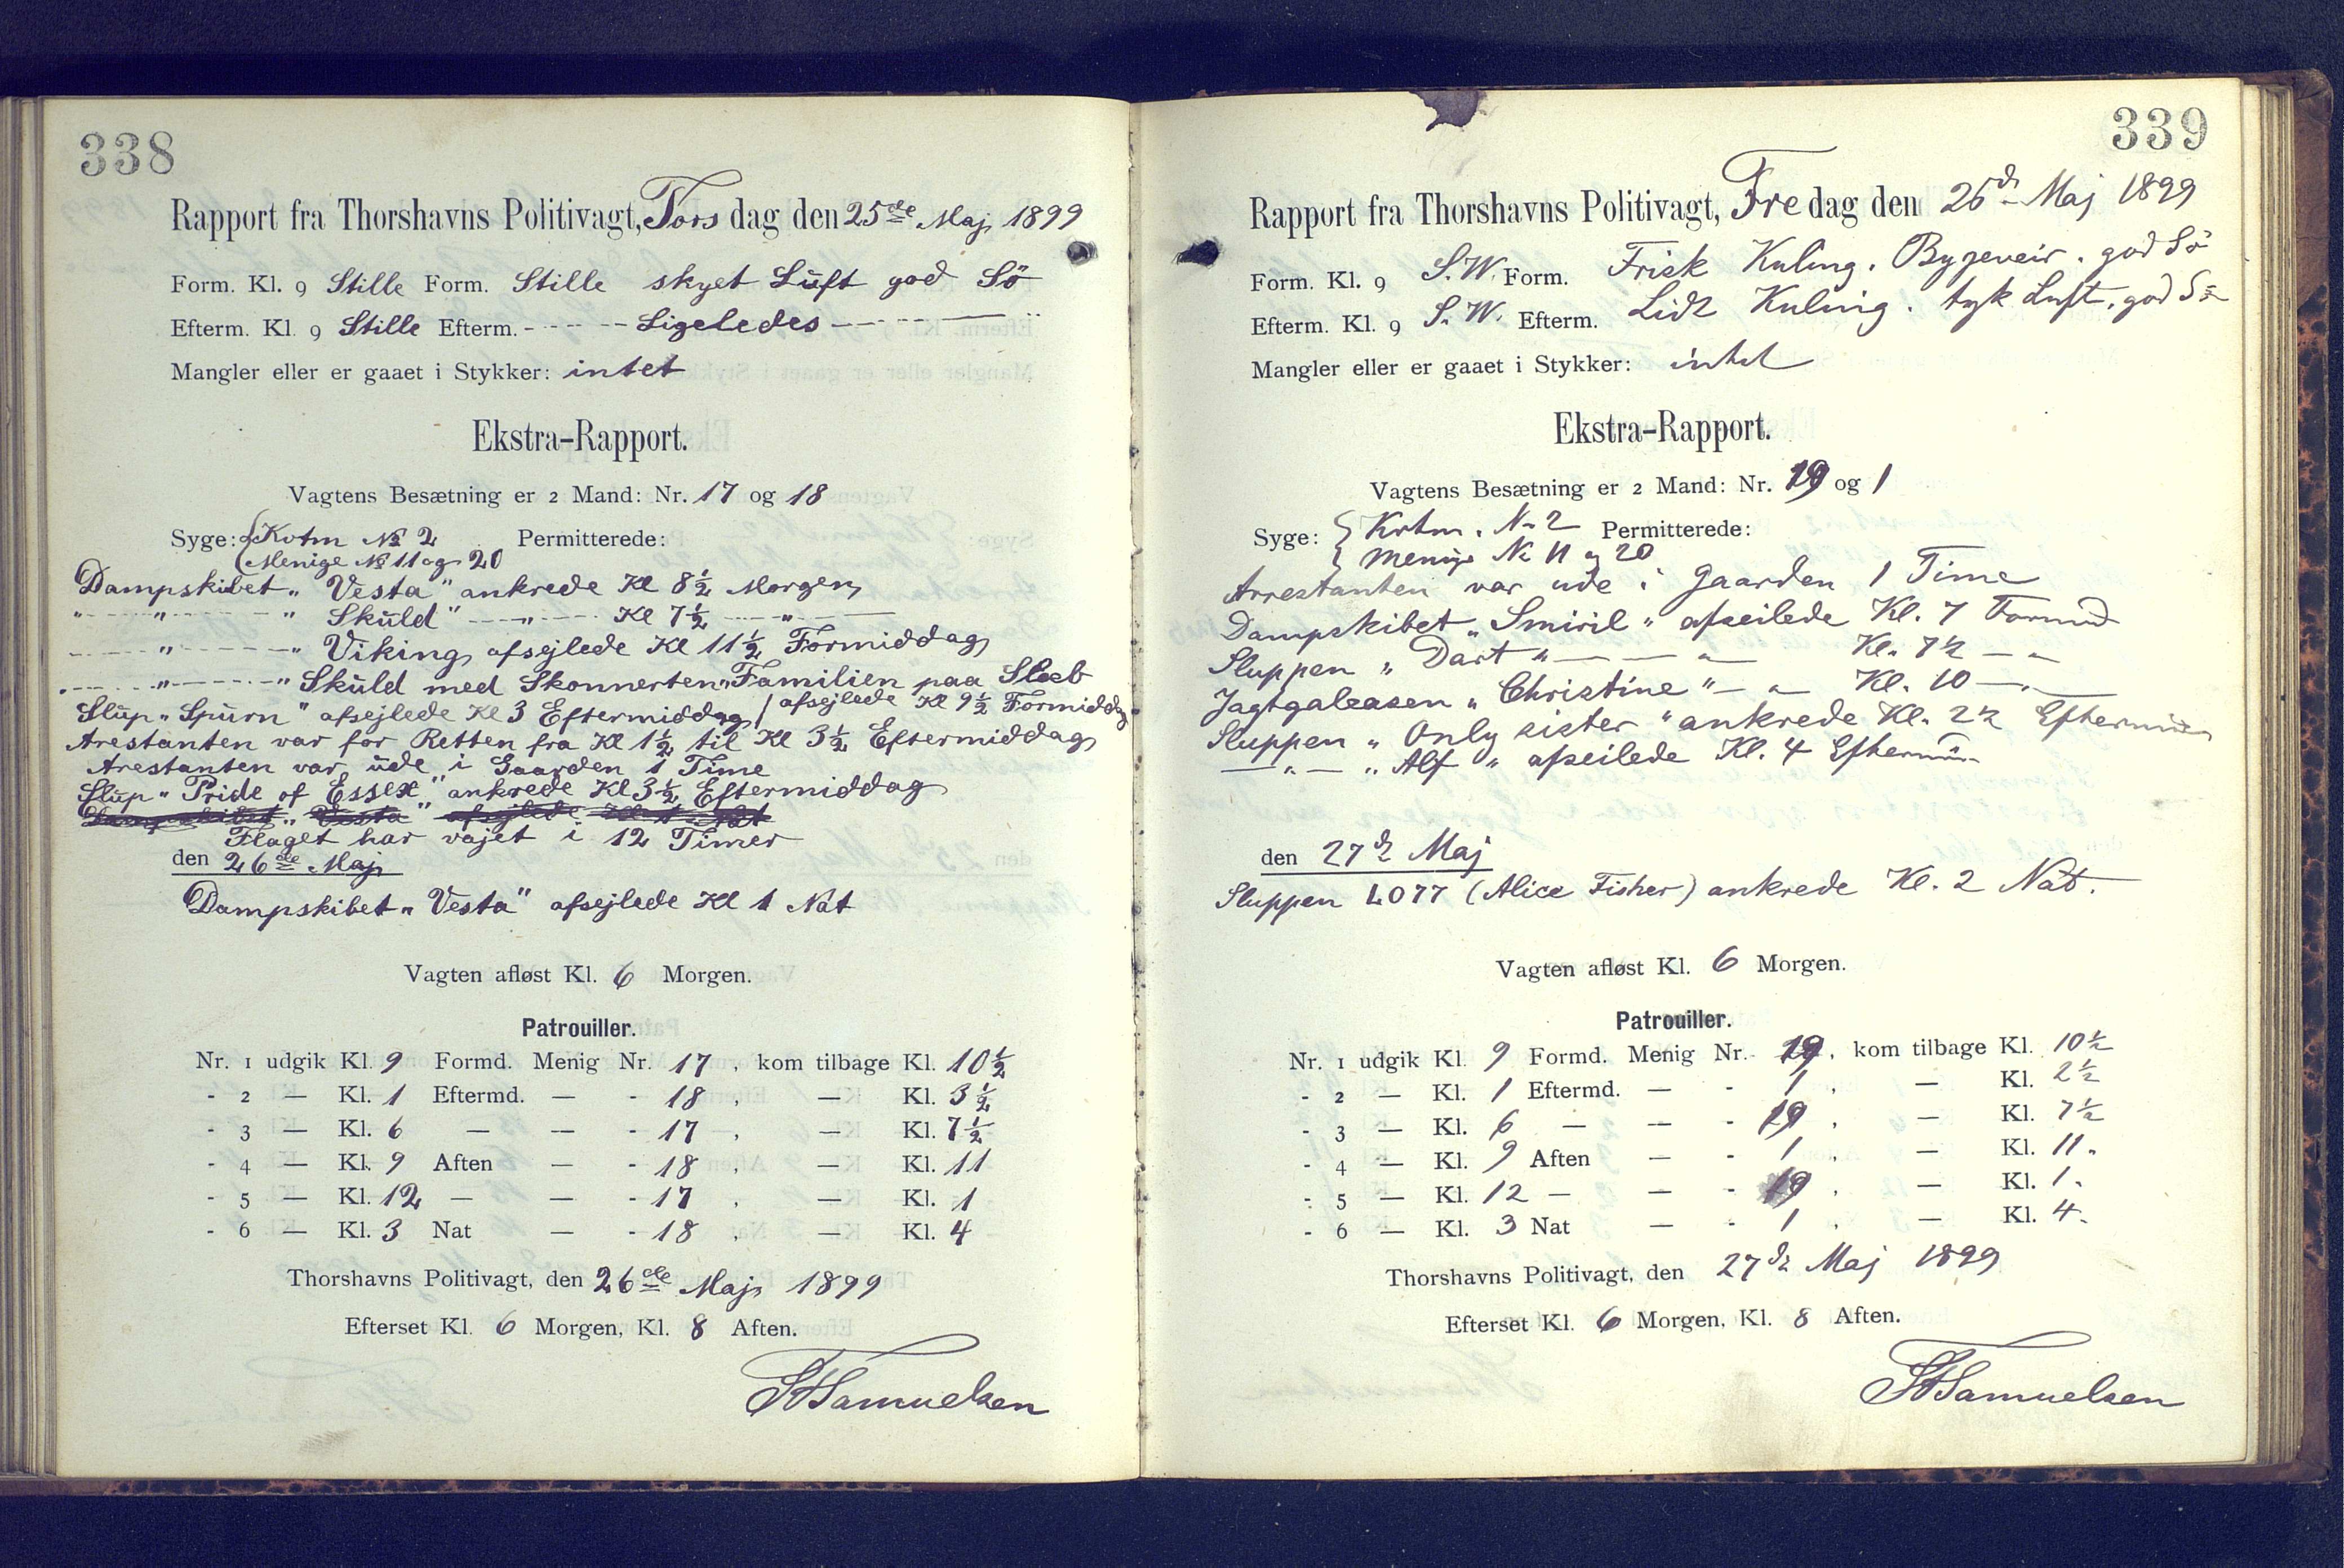 338
Rapport fra Thorshavns Politivagt, Torsdag den 25de Maj 1899
Form. Kl. 9 Stille Form. Stille skyet Luft god Sö
Efterm. Kl. 9 Stille Efterm. - - - - Ligeledes - - -
Mangler eller er gaaet i Stykker: intet
Ekstra-Rapport.
Vagtens Besætning er 2 Mand: Nr. 17 og 18
Syge: { Kvtm № 2 Permitterede:
Menige № 11 og 20
Dampskibet „Vesta" ankrede Kl 8½ Morgen
" " " Skuld" — " — Kl 7½ — " —
— " — " Viking afsejlede Kl 11½ Formiddag
— " — " Skuld med Skonnerten „Familien paa Slæb
/ afsejlede Kl 9½ Formiddag
Slup „Spurn" afsejlede Kl 3 Eftermiddag
Arestanten var for Retten fra Kl 1½ til Kl 3½ Eftermiddag
Arestanten var ude i Gaarden 1 Time
Slup „Pride of Essex" ankrede Kl 3½ Eftermiddag
Dampskibet „Vesta" afsejlede Kl 1 Nat
Flaget har vajet i 12 Timer
den 26de Maj
Dampskibet „Vesta" afsejlede Kl 1 Nat
Vagten afløst Kl. 6 Morgen.
Patrouiller.
Nr. 1 udgik Kl. 9 Formd. Menig Nr. 17, kom tilbage Kl. 10½
- 2 — Kl. 1 Eftermd. — - 18, — Kl. 3½
- 3 — Kl. 6 — — - 17, — Kl. 7½
- 4 — Kl. 9 Aften — - 18, — Kl. 11
- 5 — Kl. 12 — — - 17, — Kl. 1
- 6 — Kl. 3 Nat — - 18, — Kl. 4
Thorshavns Politivagt, den 26de Maj 1899
Efterset Kl. 6 Morgen, Kl. 8 Aften.
Samuelsen
339
Rapport fra Thorshavns Politivagt, Fredag den 26d Maj 1899
Form. Kl. 9 S.W. Form. Frisk Kuling. Bygeveir. god Sö
Efterm. Kl. 9 S.W. Efterm. Lidt Kuling. tyk Luft, god Sö
Mangler eller er gaaet i Stykker: intet
Ekstra-Rapport.
Vagtens Besætning er 2 Mand: Nr. 19 og 1
Syge: { Kvtm. № 2 Permitterede:
Menige № 11 og 20
Arrestanten var ude i Gaarden 1 Time
Dampskibet „Smiril" afseilede Kl. 7 Formd
Sluppen „Dart" — " — Kl. 7½ — " —
Jagtgaleasen „Christine" — " — Kl. 10 — " —
Sluppen „Only sister" ankrede Kl. 2½ Eftermid
— " — „Alf" afseilede Kl. 4 Eftermid
den 27d Maj
Sluppen LO77 (Alice Fisher) ankrede Kl. 2 Nat.
Vagten afløst Kl. 6 Morgen.
Patrouiller.
Nr. 1 udgik Kl. 9 Formd. Menig Nr. 19, kom tilbage Kl. 10½
- 2 — Kl. 1 Eftermd. — - 1, — Kl. 2½
- 3 — Kl. 6 — — - 19, — Kl. 7½
- 4 — Kl. 9 Aften — - 1, — Kl. 11
- 5 — Kl. 12 — — - 19, — Kl. 1
- 6 — Kl. 3 Nat — - 1, — Kl. 4
Thorshavns Politivagt, den 27d Maj 1899
Efterset Kl. 6 Morgen, Kl. 8 Aften.
Samuelsen